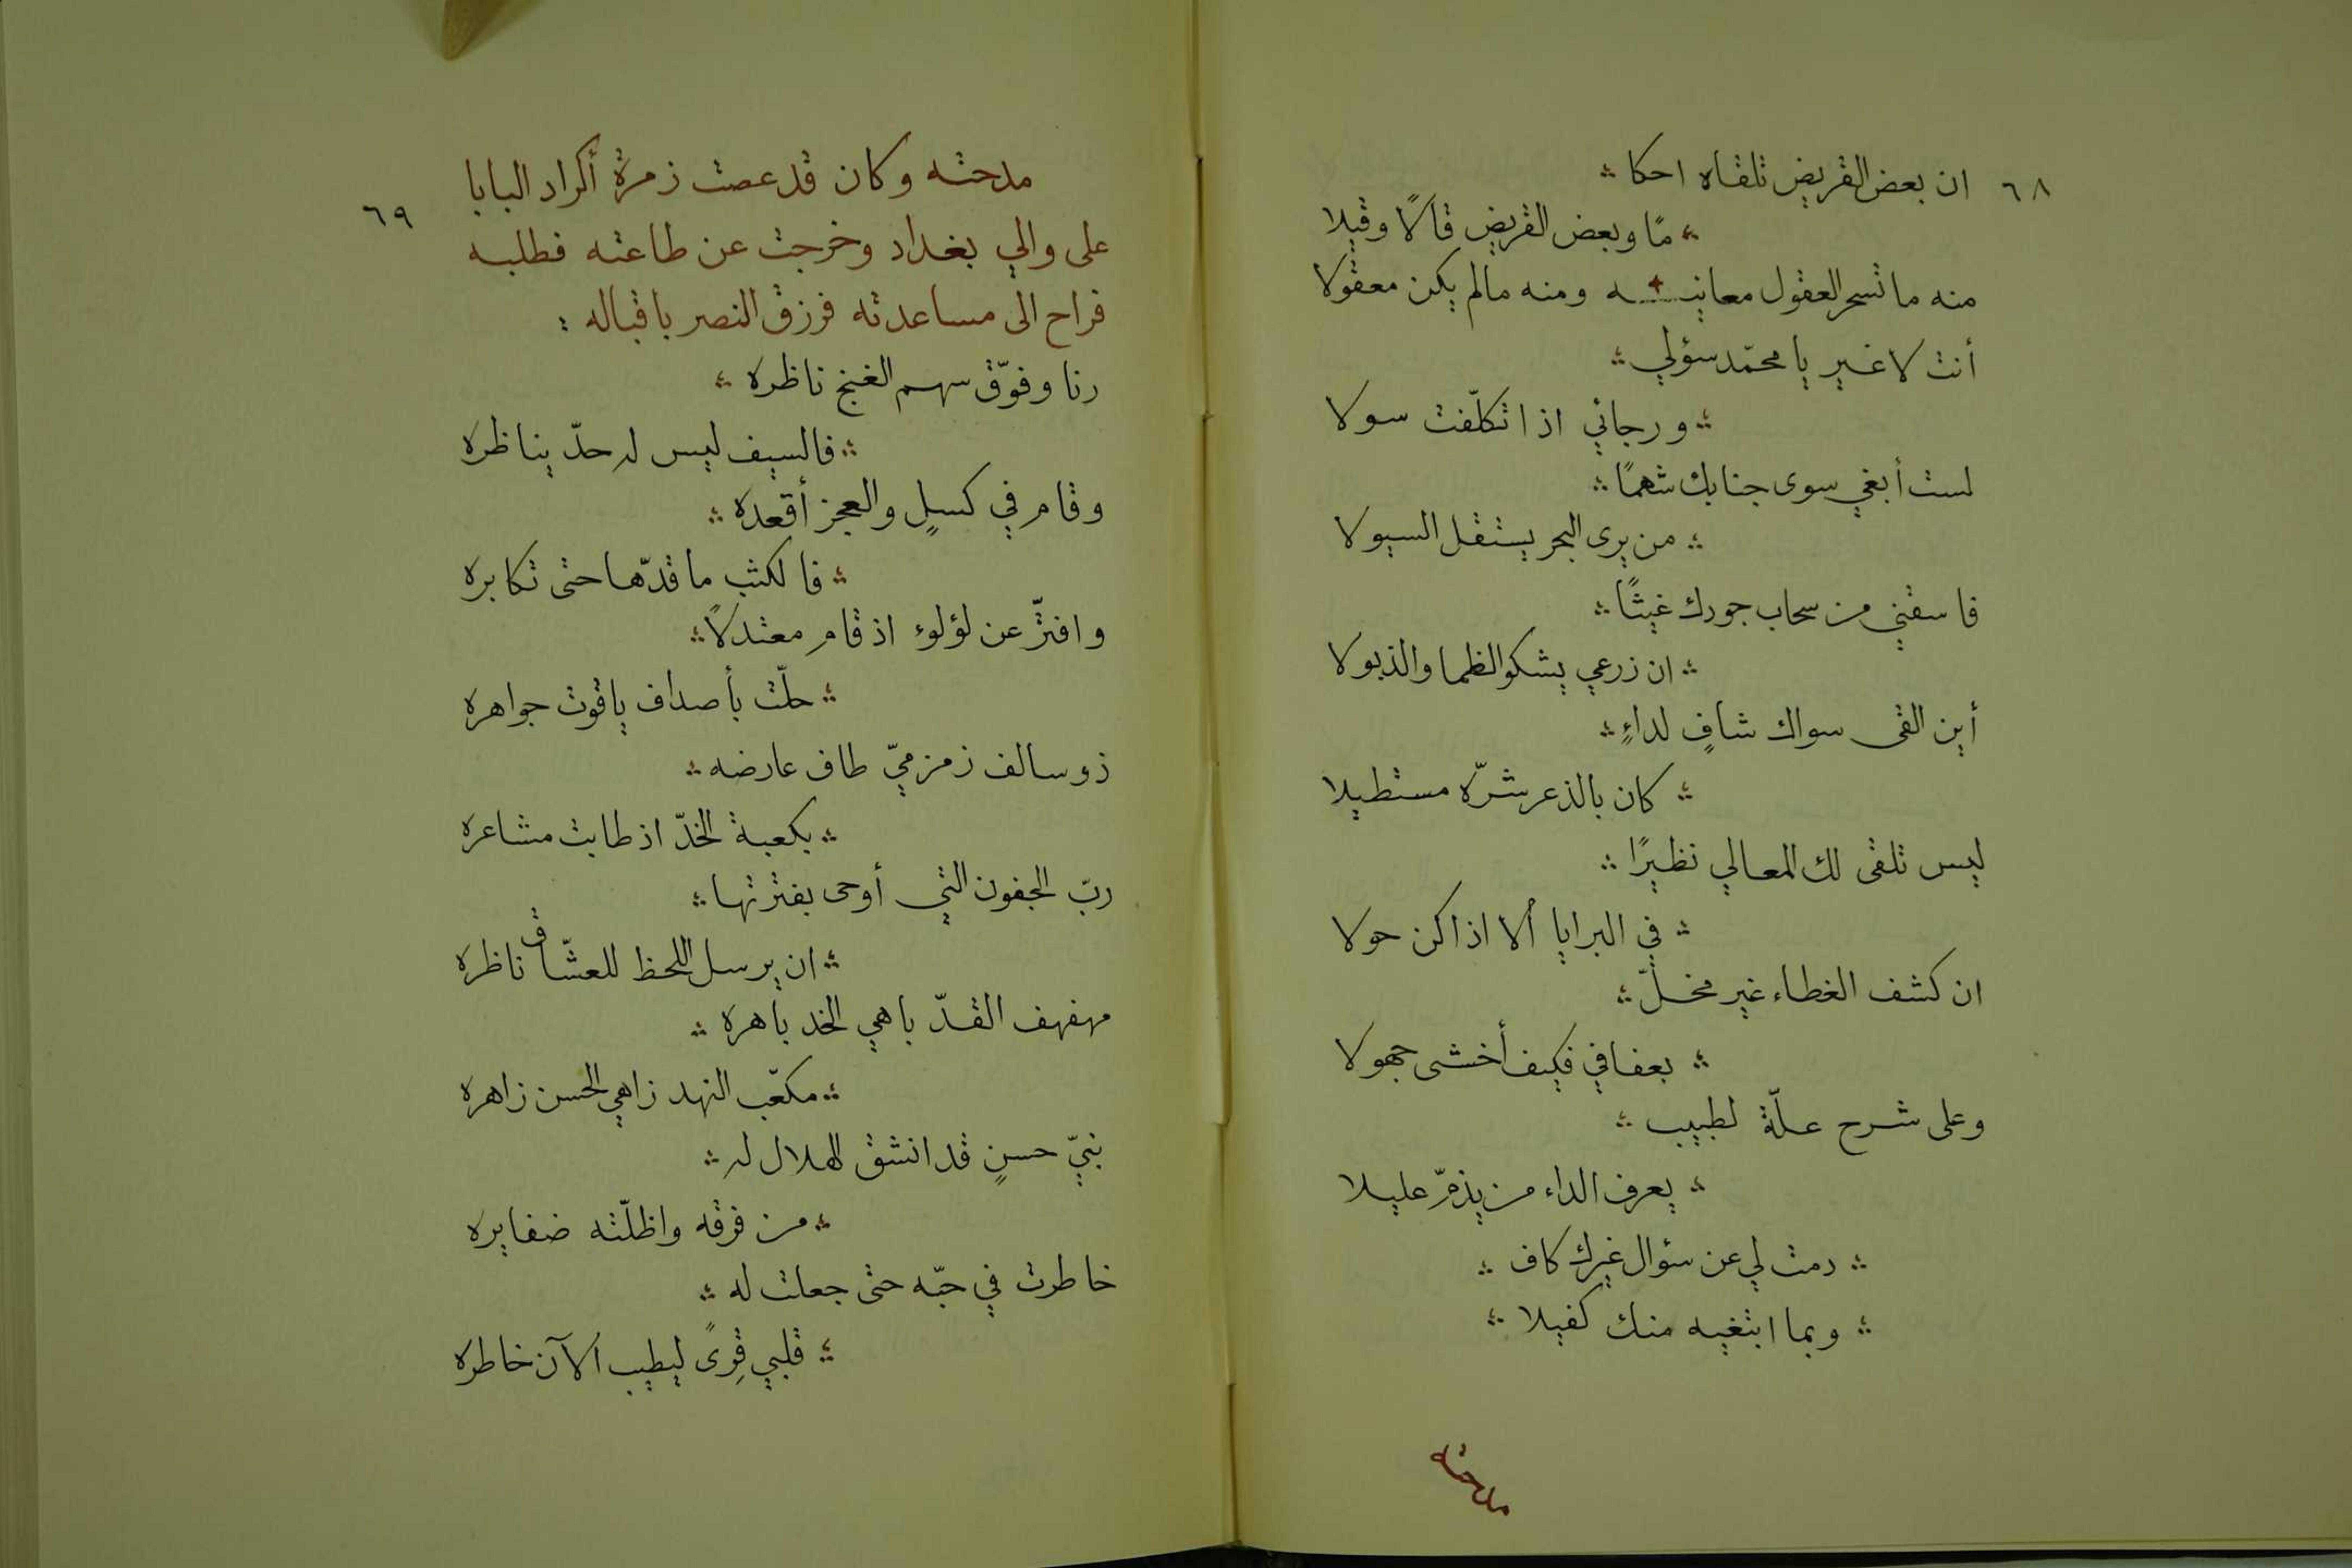 ٦٨
ان بعض القريض تلقاه احكا
مًا وبعض القريض قالًا وقيلا
منه ما تسحر العقول معانيه ومنه مالم يكن معقولا
أنت لا غير يا محمّد سؤلي
ورجائي اذا تكلّفت سولا
لست أبغي سوى جنابك شهمًا
من يرى البحر يستقل السيولا
فاسقني من سحاب جودك غيثًا
ان زرعي يشكو الظما والذبولا
أين القى سواك شافٍ لداءٍ
كان بالذعر شرّه مستطيلا
ليس تلقى لك المعالي نظيرًا
في البرايا ألا اذا كن حولا
ان كشف الغطاء غير مخلّ
بعفافي فكيف أخشى جهولا
وعلى شرح علّة لطبيب
يعرف الداء من يذمّ عليلا
دمت لي عن سؤال غيرك كاف
وبما ابتغيه منك كفيلا
مدحته
٦٩
مدحته وكان قد عصت زمرة أكراد البابا
على والي بغداد وخرجت عن طاعته فطلبه
فراح الى مساعدته فرزق النصر باقباله :
رنا وفوّق سهم الغنج ناظره
فالسيف ليس له حدّ يناظره
وقام في كسلٍ والعجز أقعده
فالكثب ما قدّها حتى تكابره
وافترّ عن لؤلوء اذ قام معتدلًا
حلّت بأصداف ياقوت جواهره
ذو سالف زمزميّ طاف عارضه
بكعبة الخدّ اذ طابت مشاعره
ربّ الجفون التي أوحى بفترتها
ان يرسل اللحظ للعشّاق ناظره
مهفهف القدّ باهي الخد باهره
مكعّب النهد زاهي الحسن زاهره
نبيّ حسنٍ قد انشق الهلال له
من فرقه واظلّته ضفايره
خاطرت في حبّه حتى جعلت له
قلبي قِرىً ليطيب الآن خاطره